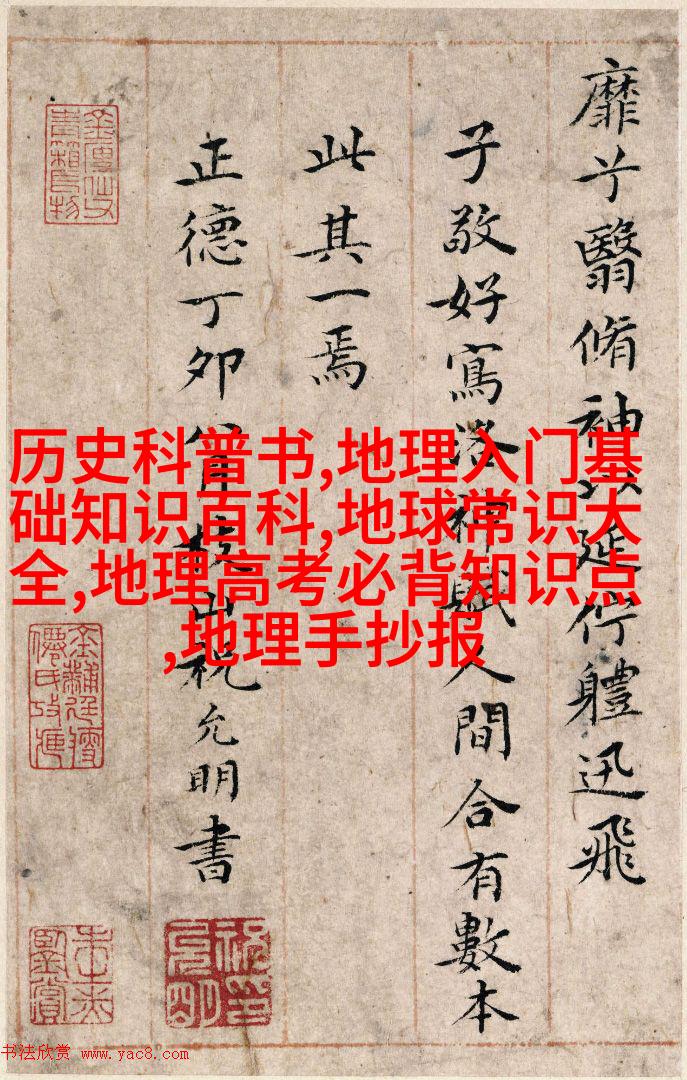 历史科普书,地理入门基
础知识百科,地球常识大
全,地理高考必背知识点
,地理手抄报
靡兮翳脩袖以延佇體迅飛
子敬好寫洛神賦人間合有數本
此其一焉
正德丁卯八月枝山祝允明書
书法欣赏 www.yac8.com